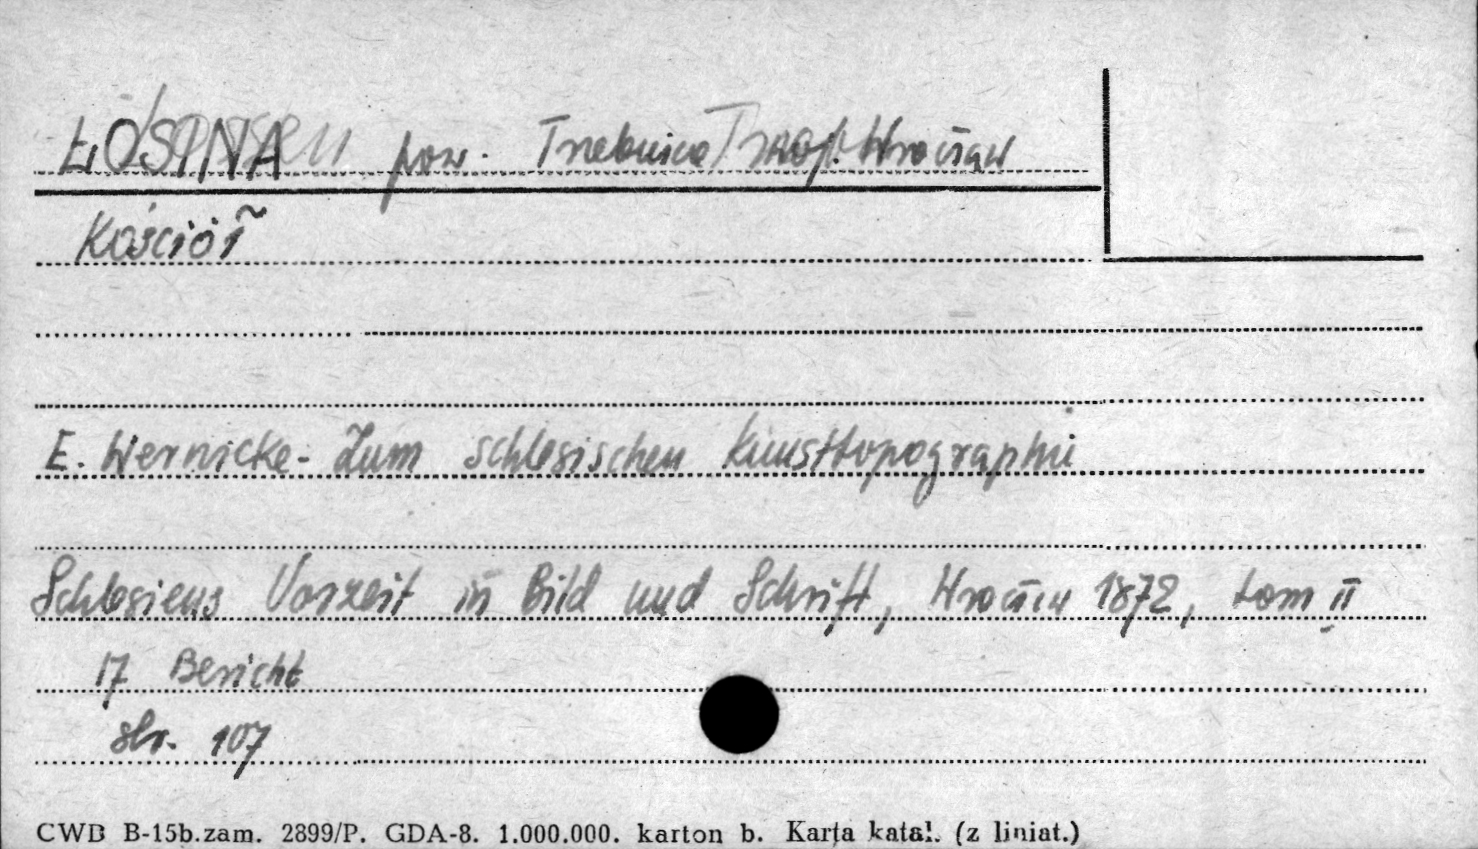 ŁOSINA pow. Trzebnica woj. Wrocław
Kościół
E. Wernicke - Zum schlesischen Kunsttopographie
Schlesiens Vorzeit in Bild und Schrift, Wrocław 1872, tom II
17 Bericht
str. 107
CWD B-15b.zam. 2899/P. GDA-8. 1.000.000. karton b. Karta katal. (z liniat.)